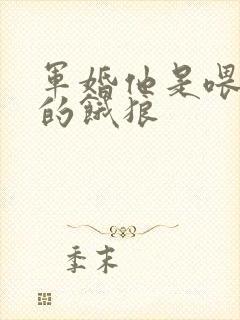 軍婚他是喂
的餓狼
季末